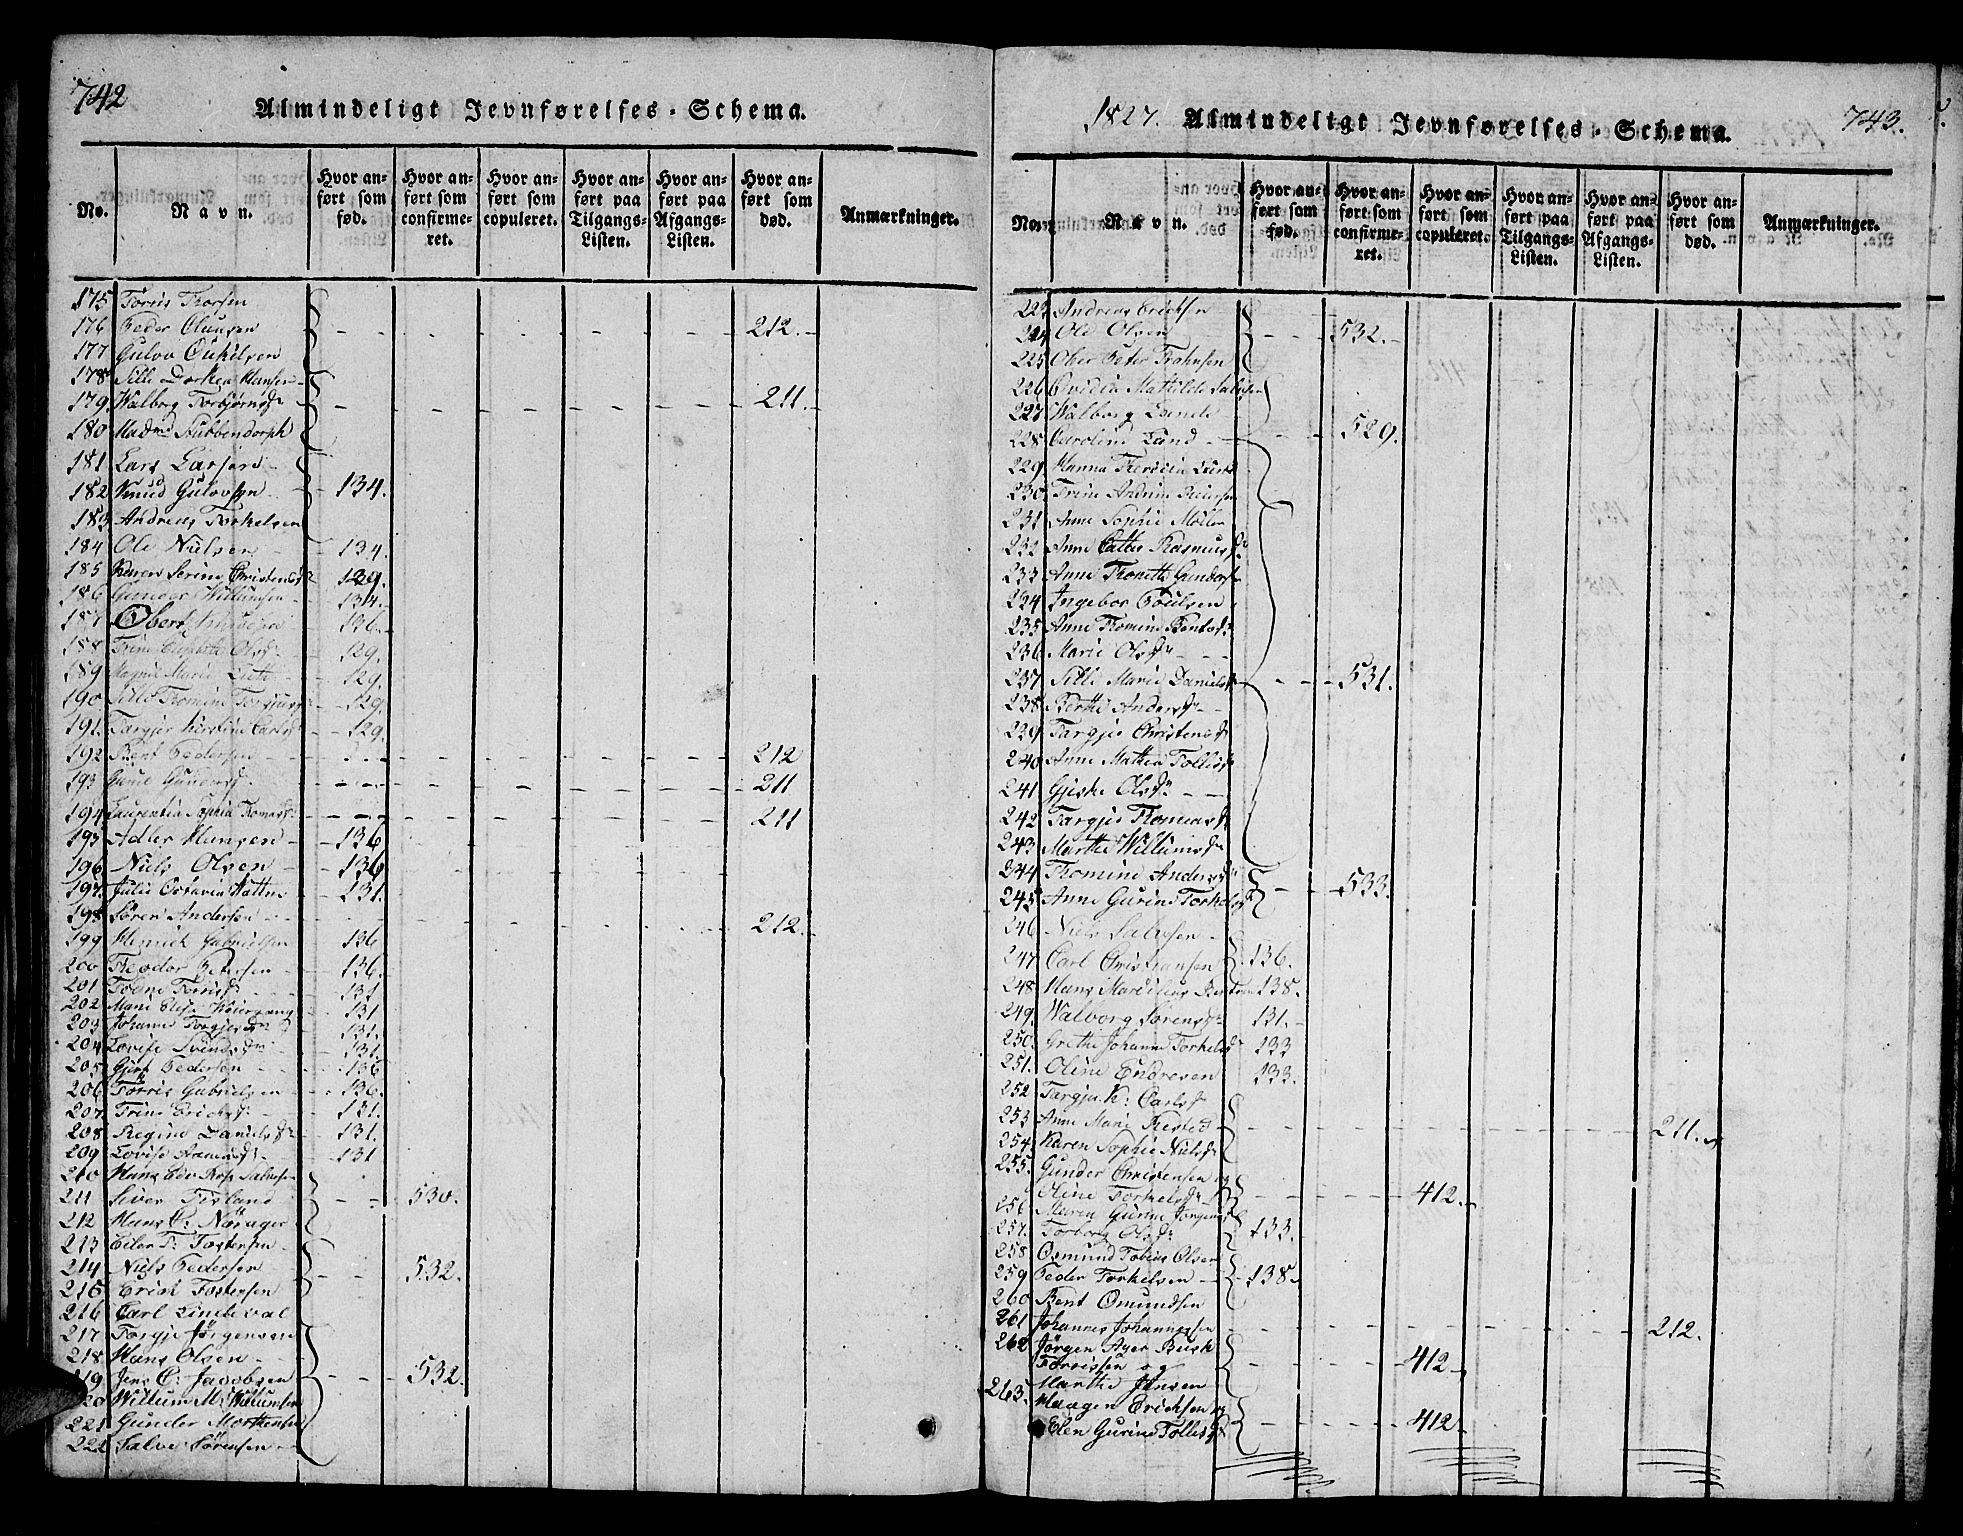 742
Almindeligt Jevnførelses-Schema.
No.
Navn.
Hvor anført som fød.
Hvor anført som confirmeret.
Hvor anført som copuleret.
Hvor anført paa Tilgangs-Listen.
Hvor anført paa Afgangs-Listen.
Hvor anført som død.
Anmærkninger.
175 Torsen
176 Peder Clausen 212.
177
178 Sille Dorthea Hansen
179 Walborg Torbjørnsdr 211.
180 Madme Stubbendorph
181 Lars Larsen
182 Knud Gulovsen 134.
183 Andreas Torkelsen
184 Ole Nielsen 134.
185 Karen Serine Christensdr 129.
186 Gunder Willumsen 134.
187 Obert 136.
188 Trine Elisabeth Olsdr 129.
189 Marie 129.
190 Sille Tomine 129.
191. Targjer Kirstine Carlsdr 129.
192 Bent Pedersen 212
193 211
194 Laurentia Sophia Thomasdr 211
195 Adler Hansen 136
196 Niels Olsen 136
197 Julie Octavia 131.
198 Søren Andersen 212.
199 Henrich Gabrielsen 136
200 Theodor Petersen 136.
201 131
202 Marie Elise 131
203 Johanne Torgjesdr 131.
204 Lovise Svendsdr 131.
205 Gjert Pedersen 136
206 Tørris Gabrielsen 136.
207. Trine Erichsdr 131.
208 Regine Danielsdr 131.
209 Lovise 131
210 Hans
211 Siver 530.
212 Hans
213 Eiler T: Tostensen
214 Niels Pedersen 532.
215 Erich Tostensen
216 Carl
217 Torgje Jørgensen
218. Hans Olsen
219 Jens C: Jacobsen 532.
220 Willum M: Willumsen
221 Gunder Morthensen
222 Salve Sørensen
1827.
Almindeligt Jevnførelses-Schema.
743.
No.
Navn.
Hvor anført som fød.
Hvor anført som confirmeret.
Hvor anført som copuleret.
Hvor anført paa Tilgangs-Listen.
Hvor anført paa Afgangs-Listen.
Hvor anført som død.
Anmærkninger.
223 Andreas Erichsen
224 Ole Olsen 532.
225 Ober Peter
226 Ovidia Mathilde Salvesen
227 Walborg
228 Caroline Lund 529.
229 Hanna
230 Trine Andrine Reiersen
231 Anne Sophie Møller
232 Anne Cathr Rasmusdr
233 Anne Tronette Gundersdr
234 Ingebor Poulsen
235 Anne Tomine Bentsdr
236 Marie Olsdr
237 Sille Marie Danielsdr 531.
238 Berthe Andersdr
239 Targjer Christensdr
240 Anne Mathea Tollisdr
241 Gjeske Olsdr
242 Targjer Thomasdr
243 Marthe Willumsdr
244 Tomine Andersdr 533.
245 Anne Gurine Torkelsdr
246 Niels Salvesen
247 Carl Christiansen 136.
248 Hans 138.
249. Walborg Sørensdr 131.
250. Grethe Johanne Torkelsdr 133
251. Oline Endresen 133.
252 Targjer K: Carlsdr
253 Anne Marie 211.
254. Karen Sophie Nielsdr
255. Gunder Christensen og
Oline Torkelsdr 412.
256 Maren Gurine Jørgensdr
257. Torborg Olsdr 133.
258 Osmund Tobias Olsen
259 Peder Torkelsen 138.
260 Bent Omundsen
261 Johannes Johannessen 212.
262 Jørgen Ager Busk
Torrissen og 412
Marthe Jensen
263. Haagen Erichsen og
Elen Gurine Tollisdr 412